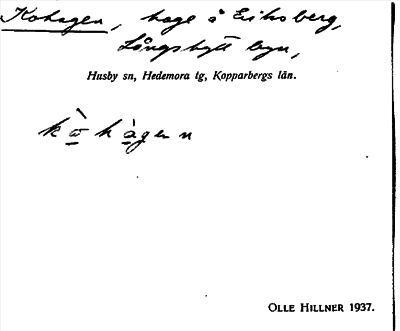 Kohagen, hage å Eriksberg,
Långshytt byn,
Husby sn, Hedemora tg, Kopparbergs län.
OLLE HILLNER 1937.